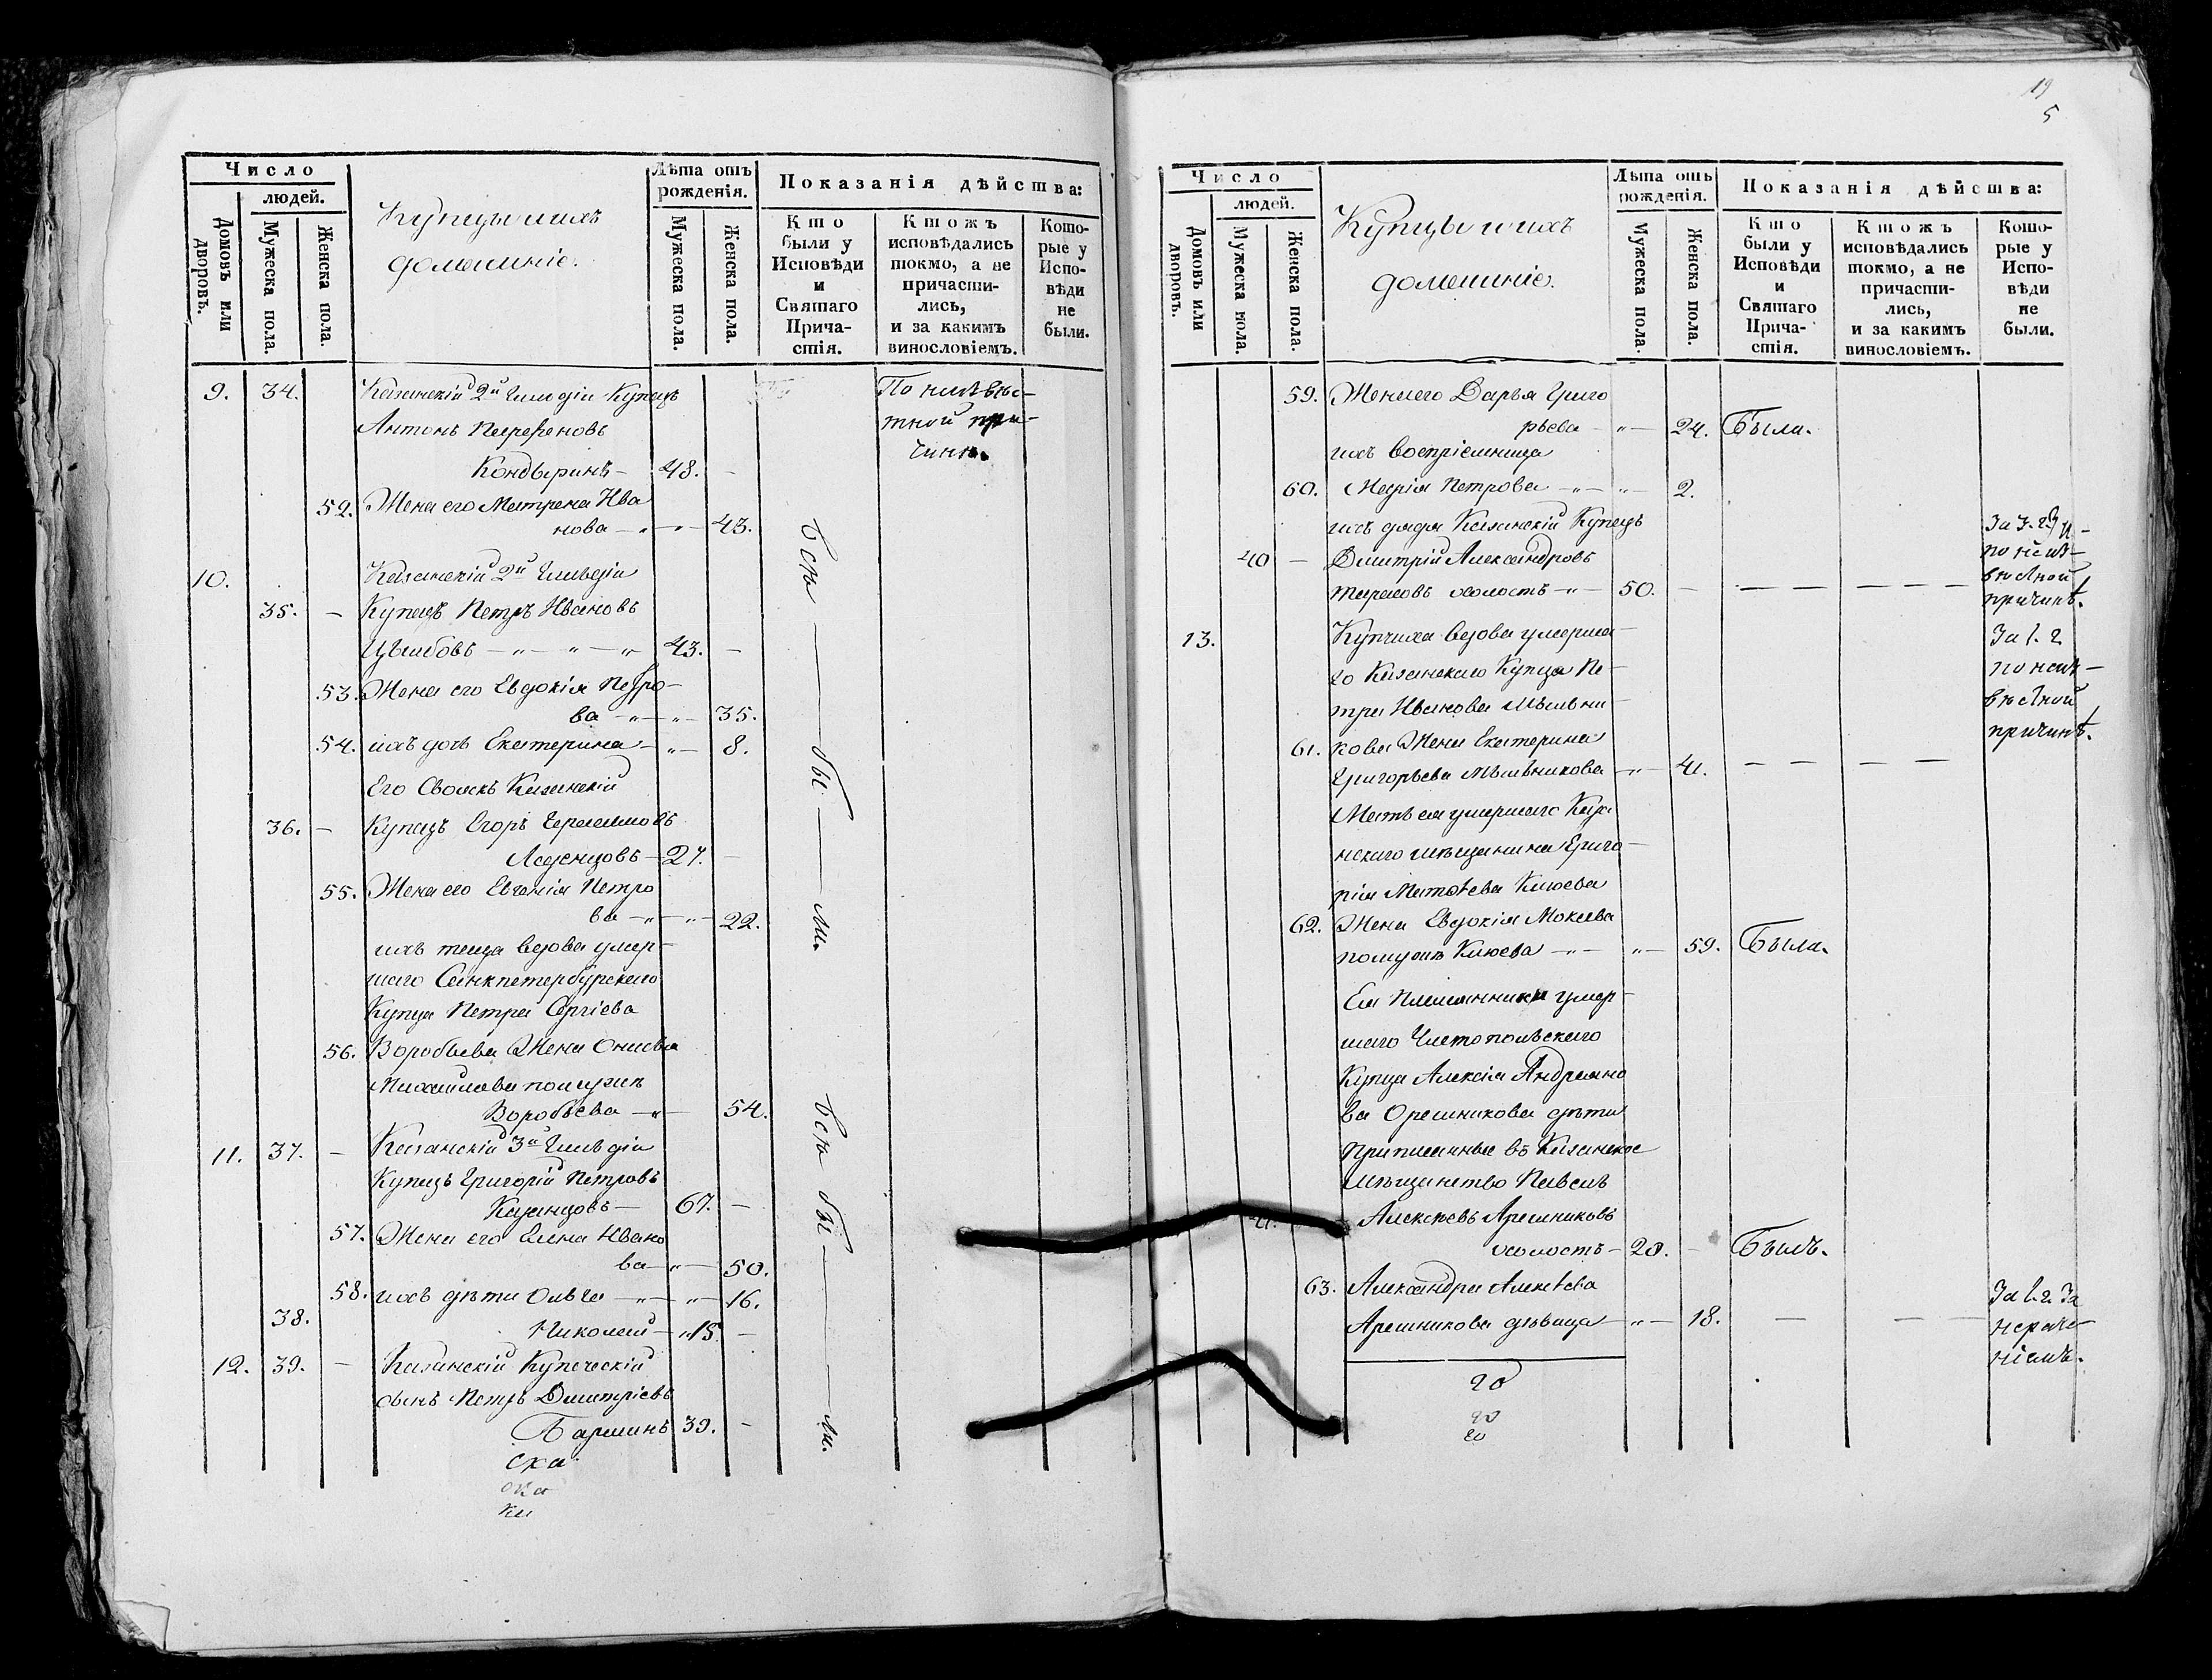 Число
людей.
Домовъ или дворовъ.
Мужеска пола.
Женска пола.
Купцы и ихъ
домашніе.
Лѣта отъ
рожденія.
Мужеска пола.
Женска пола.
Показанія дѣйства:
Кто
были у
Исповѣди
и
Святаго
Прича-
стія.
Ктожъ
исповѣдались
токмо, а не
причасти-
лись,
и за какимъ
винословіемъ.
Кото-
рые у
Испо-
вѣди
не
были.
9. 34. Казанскій 2й Гильдіи Купецъ По неизвѣс-
Антонъ Парфеновъ тной при-
Кондыринъ — 48. — чинѣ.
52. Жена его Матрена Ива
нова — „ — „ — 43.
10. Казанскій 2й Гильдіи
35. — Купецъ Петръ Ивановъ
Цыбовъ — „ — „ — „ 43. —
53. Жена его Евдокія Петро-
ва — „ — „ — 35.
54. ихъ дочь Екатерина — „ — 8.
Его Своякъ Казанскій
36. — Купецъ Егоръ Герасимовъ
Лоденцовъ — 27. —
55. Жена его Евгенія Петро
ва — „ — „ — 22.
ихъ теща вдова умер-
шаго Санкпетербурскаго
Купца Петра Сергіева
56. Воробьева Жена Онисья
Михайлова помужѣ
Воробьева — „ — 54.
11. 37. — Казанскій 3й Гильдіи
Купецъ Григорій Петровъ
Казанцовъ — 67. —
57. Жена его Елена Ивано
ва — „ — 50.
58. ихъ дѣти Ольга — „ — „ — 16.
38. Николай — „ 15. —
12. 39. — Казанскій Купеческій
сынъ Петръ Дмитріевъ
Паршинъ 39. —
Всѣ — бы — ли.
Всѣ бы — ли.
ска
19
5
Число
людей.
Домовъ или дворовъ.
Мужеска пола.
Женска пола.
Купцы и ихъ
домашніе.
Лѣта отъ
рожденія.
Мужеска пола.
Женска пола.
Показанія дѣйства:
Кто
были у
Исповѣди
и
Святаго
Прича-
стія.
Ктожъ
исповѣдались
токмо, а не
причасти-
лись,
и за какимъ
винословіемъ.
Кото-
рые у
Испо-
вѣди
не
были.
59. Жена его Дарья Григо
рьева — „ — 24. Была.
ихъ воспріемница
60. Марія Петрова — „ — „ — 2.
ихъ дядя Казанскій Купецъ За 3. г.
40 — Дмитрій Александровъ по неиз-
Тарасовъ холостъ — „ — 50. — — — — — — вѣстной
причинѣ.
13. Купчиха вдова умерша- За 1. г
го Казанскаго Купца Пе- по неиз-
тра Иванова Мыльни- вѣстной
61. кова Жена Екатерина причинѣ.
Григорьева Мыльникова — „ — 41. — — — —
Мать ея умершаго Каза
нскаго мѣщанина Григо-
рія Матвѣева Клюева
62. Жена Евдокія Мокеева
помужѣ Клюева — „ — „ — 59. Была.
Ея Племянники умер-
шаго Чистопольскаго
Купца Алексія Андреяно
ва Орешникова дѣти
приписанные въ Казанское
мѣщанство Павелъ
41. — Алексѣевъ Арешниковъ
холостъ — 20. — Былъ.
63. Александра Алексѣева За 1. г. За
Арешникова дѣвица — „ — 18. — — — нераде-
ніемъ.
го
го
го